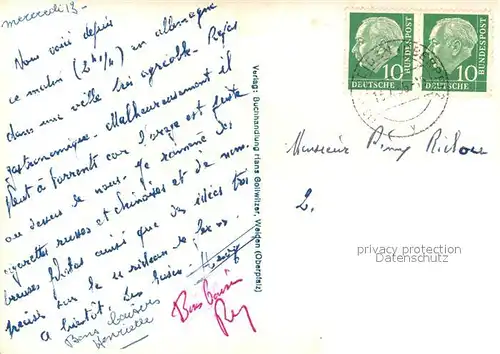 mercredi 13
Nous voici depuis
ce matin (2h 1/4) en allemagne
dans une ville très agréable. Repas
gastronomique. Malheureusement il
pleut à torrents car l'orage est juste
au dessus de nous. Je ramène des
cigarettes russes et chinoises et de nom-
breuses photos ainsi que des idées très
précises sur le
à bientôt.
Bons baisers
Henriette
Bons baisers
Verlag: Buchhandlung Hans Gollwitzer, Weiden (Oberpfalz)
10
DEUTSCHE
BUNDESPOST
10
DEUTSCHE
BUNDESPOST
Monsieur
privacy protection
Datenschutz